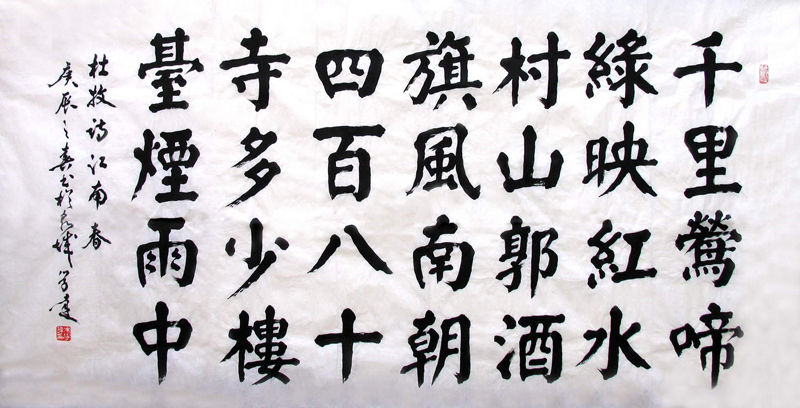 千里鶯啼
綠映紅水
村山郭酒
旗風南朝
四百八十
寺多少樓
臺煙雨中
杜牧诗江南春
庚辰之春书於